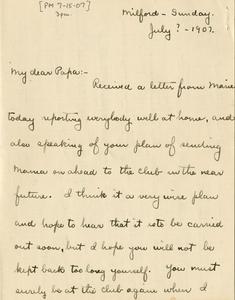 [PM 7-15-07]
3pm.
Milford - Sunday.
July ? - 1907.
My dear Papa:-
Received a letter from Marie
today reporting everybody well at home, and
also speaking of your plan of sending
Mama on ahead to the club in the near
future. I think it a very wise plan
and hope to hear that it is to be carried
out soon, but I hope you will not be
kept back too long yourself. You must
surely be at the club again when I